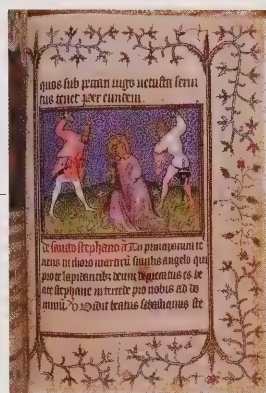 quos sub peccati iugo uetusta serui
tus tenet Per eundem
de sancto stephano a Tu principatum te
nens in choro martirū similis angelo qui
pro te lapidantibz deum deprecatus es be
ate stephane intercede pro nobis ad do
minū v Vidit beatus Sebastianus Ste